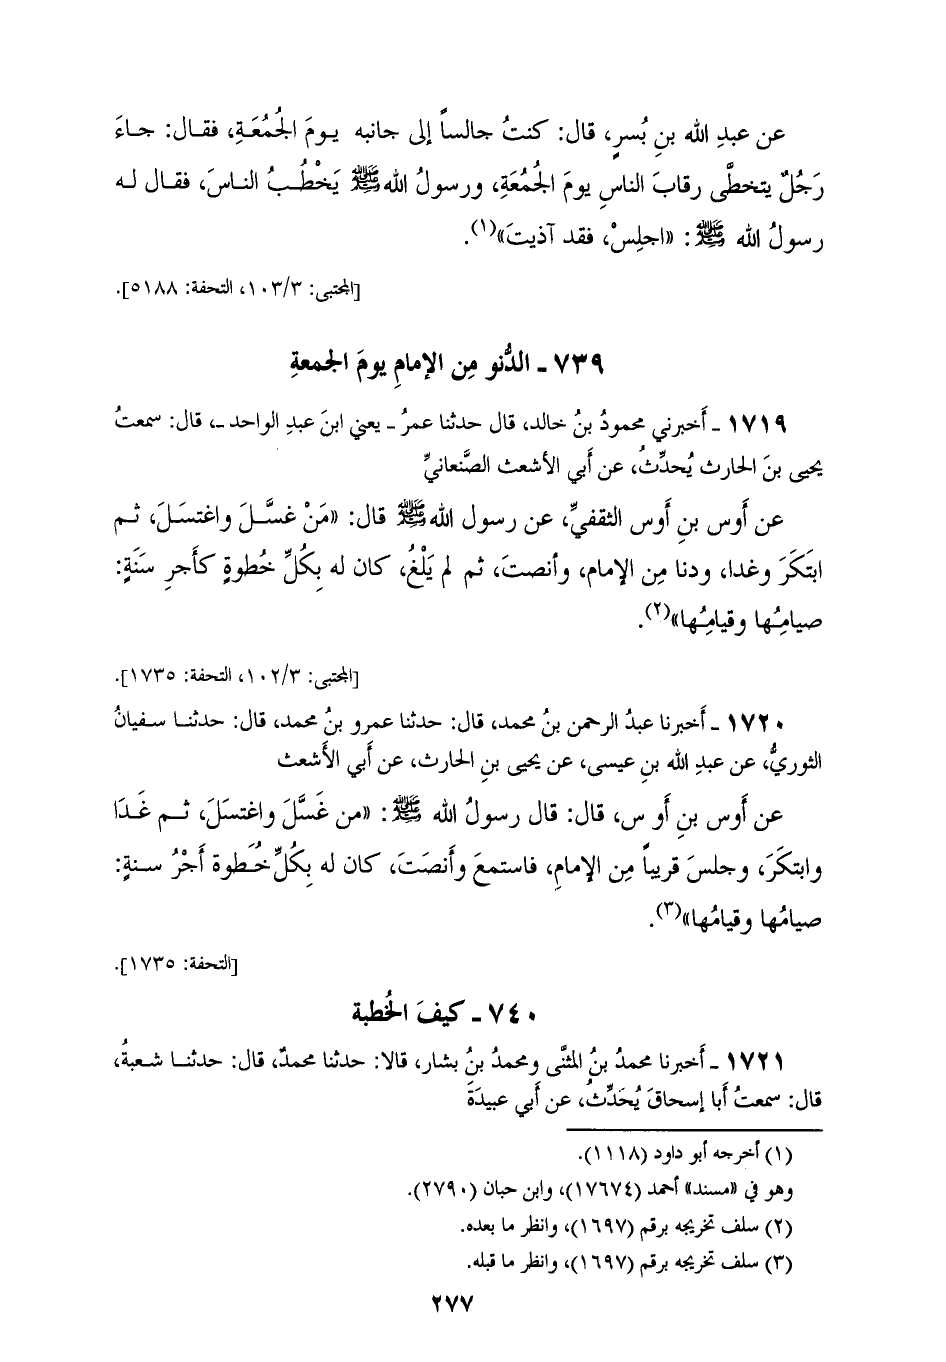 عن عبدِ الله بنِ بُسرٍ، قال: كنتُ جالساً إلى جانبه يـومَ الجُمُعَـةِ، فقـال: جـاءَ
رَجُلٌ يتخطَّى رقابَ الناسِ يومَ الجُمُعَةِ، ورسولُ اللهﷺ يَخْطُـبُ النـاسَ، فقـال لـه
رسولُ الله ﷺ: «اجلِسْ، فقد آذيتَ»(١).
[المجتبى: ١٠٣/٣، التحفة: ٥١٨٨].
٧٣٩ ـ الدُّنو مِن الإمامِ يومَ الجمعةِ
١٧١٩ ـ أَخبرني محمودُ بنُ خالد، قال حدثنا عمرُ ـ يعني ابنَ عبدِ الواحد ـ، قال: سمعتُ
يحيى بنَ الحارث يُحدِّثُ، عن أَبي الأشعث الصَّنعانيِّ
عن أَوس بنِ أَوس الثقفيِّ، عن رسول اللهﷺ قال: «مَنْ غسَّـلَ واغتسَـلَ، ثـم
ابتَكَرَ وغدا، ودنا مِن الإمام، وأَنصتَ، ثم لم يَلْغُ، كان له بِكُلِّ خُطوةٍ كأَجرِ سنَةٍ:
صيامِـُها وقيامِـُها»(٢).
[المجتبى: ١٠٢/٣، التحفة: ١٧٣٥].
١٧٢٠ ـ أَخبرنا عبدُ الرحمن بنُ محمد، قال: حدثنا عمرو بنُ محمد، قال: حدثنـا سـفيانُ
الثوريُّ، عن عبدِ الله بنِ عيسى، عن يحيى بنِ الحارث، عن أَبي الأَشعث
عن أَوس بنِ أَو س، قال: قال رسولُ الله ﷺ: «من غَسَّلَ واغتسَلَ، ثـم غَـدَا
وابتكَرَ، وجلسَ قريباً مِن الإمامِ، فاستمعَ وأَنصَتَ، كان له بِكُلِّ خُطوة أَجْرُ سـنةٍ:
صيامُها وقيامُها»(٣).
[التحفة: ١٧٣٥].
٧٤٠ ـ كيفَ الخُطبة
١٧٢١ ـ أَخبرنا محمدُ بنُ المثنَّى ومحمدُ بنُ بشار، قالا: حدثنا محمدٌ، قال: حدثنـا شـعبةُ،
قال: سمعتُ أَبا إسحاقَ يُحَدِّثُ، عن أَبي عبيدَةَ
(١) أخرجه أبو داود (١١١٨).
وهو في «مسند» أحمد (١٧٦٧٤)، وابن حبان (٢٧٩٠).
(٢) سلف تخريجه برقم (١٦٩٧)، وانظر ما بعده.
(٣) سلف تخريجه برقم (١٦٩٧)، وانظر ما قبله.
٢٧٧